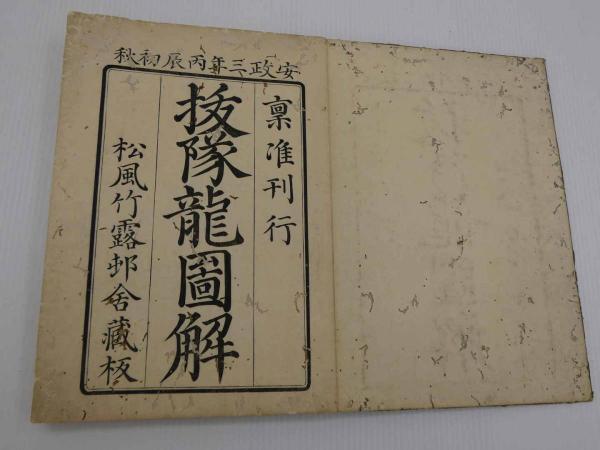 安政三年丙辰初秋
稟准刊行
抜隊龍圖解
松風竹露邨舍藏板